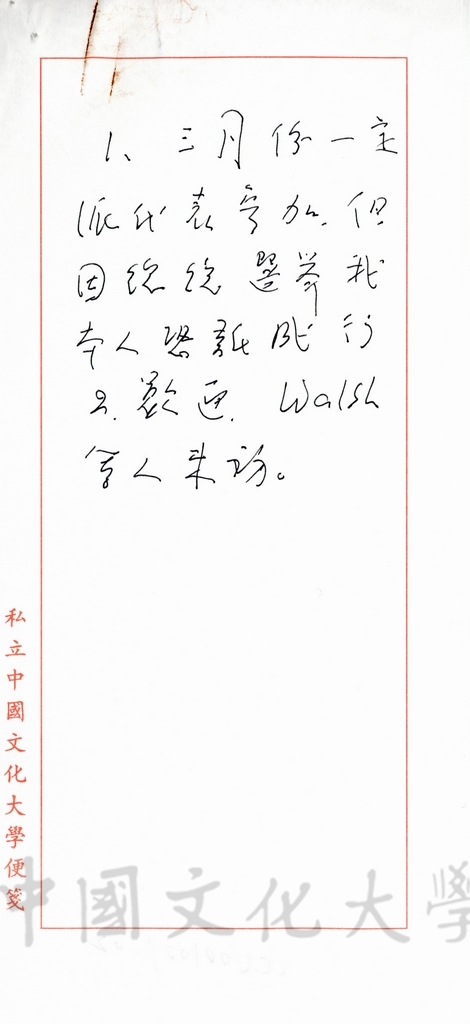 1、三月份一定
派代表參加. 但
因總統選舉我
本人恐難成行
2. 歡迎. Walsh
等人來訪。
私立中國文化大學便箋
中國文化大學